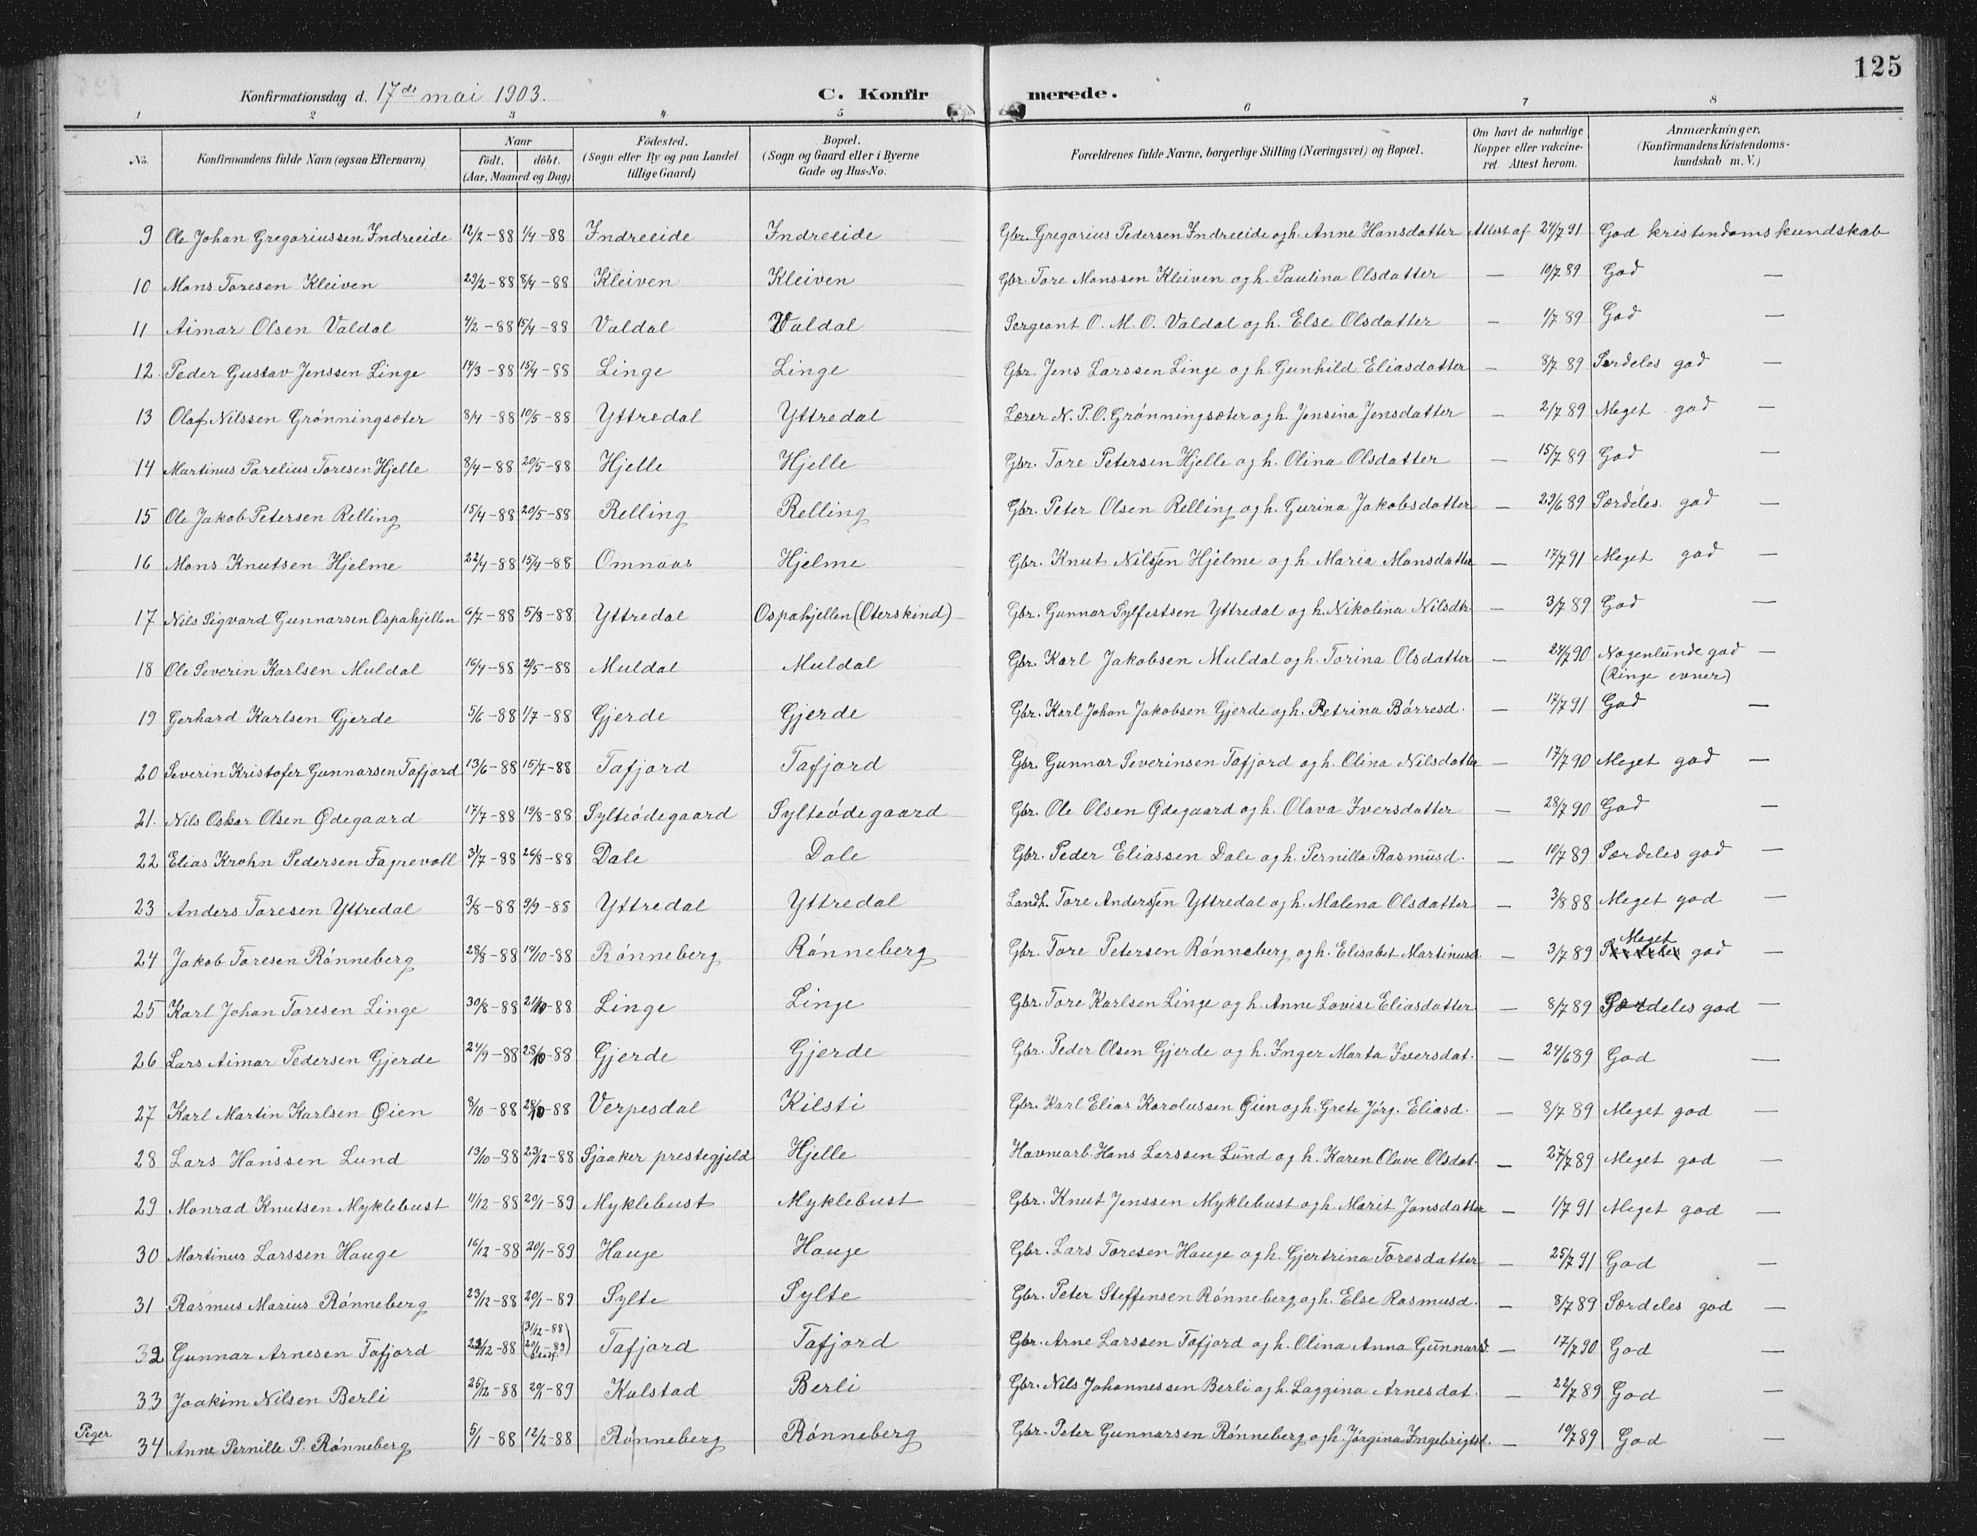 125
Konfirmationsdag d. 17de mai 1903. C. Konfirmerede.
1 2 3 4 5 6 7 8
No. Konfirmandens fulde Navn (ogsaa Efternavn) Naar født. døbt. (Aar, Maaned og Dag) Fødested. (Sogn eller By og paa Landet tillige Gaard) Bopæl. (Sogn og Gaard eller i Byerne Gade og Hus-No. Forældrenes fulde Navne, borgerlige Stilling (Næringsvei) og Bopæl. Om havt de naturlige Kopper eller vakcineret. Attest herom. Anmærkninger. (Konfirmandens Kristendomskundskab m. V.)
9 Ole Johan Gregoriussen Indreeide 12/2-88 1/4-88 Indreeide Indreeide Gbr. Gregorius Pedersen Indreeide og h. Anne Hansdatter Attest af 24/7 91 God kristendomskundskab
10 Mons Toresen Kleiven 29/2-88 8/4-88 Kleiven Kleiven Gbr. Tore Monssen Kleiven og h. Paulina Olsdatter — 10/7 89 God —
11 Aimar Olsen Valdal 4/2-88 15/4-88 Valdal Valdal Sergeant O. M. O. Valdal og h. Else Olsdatter — 1/7 89 God —
12 Peder Gustav Jenssen Linge 14/3-88 15/4-88 Linge Linge Gbr. Jens Larssen Linge og h. Gunhild Eliasdatter — 8/7 89 Særdeles god —
13 Olaf Nilssen Grønningsæter 8/4-88 10/5-88 Yttredal Yttredal Lærer N. P. O. Grønningsæter og h. Jensina Jensdatter — 2/7 89 Meget god —
14 Martinus Parelius Toresen Hjelle 8/4-88 20/5-88 Hjelle Hjelle Gbr. Tore Petersen Hjelle og h. Olina Olsdatter — 15/7 89 God —
15 Ole Jakob Petersen Relling 15/4-88 20/5-88 Relling Relling Gbr. Peter Olsen Relling og h. Gurina Jakobsdatter — 29/6 89 Særdeles god —
16 Mons Knutsen Hjelme 22/4-88 15/4-88 Omnaas Hjelme Gbr. Knut Nilssen Hjelme og h. Maria Monsdatter — 17/7 91 Meget god —
17 Nils Sigvard Gunnarsen Ospahjellen 6/7-88 5/8-88 Yttredal Ospahjellen (Oterskind) Gbr. Gunnar Sylfestsen Yttredal og h. Nikolina Nilsdtr — 3/7 89 God —
18 Ole Severin Karlsen Muldal 16/4-88 2/5-88 Muldal Muldal Gbr. Karl Jakobsen Muldal og h. Torina Olsdatter — 24/7 90 Nogenlunde god —
(Ringe evner)
19 Gerhard Karlsen Gjerde 5/6-88 1/7-88 Gjerde Gjerde Gbr. Karl Johan Jakobsen Gjerde og h. Petrina Børresd. — 17/7 91 God —
20 Severin Kristofer Gunnarsen Tafjord 13/6-88 15/7-88 Tafjord Tafjord Gbr. Gunnar Severinsen Tafjord og h. Olina Nilsdatter — 17/7 90 Meget god —
21. Nils Oskar Olsen Ødegaard 17/7-88 19/8-88 Sylteødegaard Sylteødegaard Gbr. Ole Olsen Ødegaard og h. Olava Iversdatter — 28/7 90 God —
22 Elias Krohn Pedersen Fagrevoll 31/7-88 26/8-88 Dale Dale Gbr. Peder Eliassen Dale og h. Pernilla Rasmusd. — 10/7 89 Særdeles god —
23 Anders Toresen Yttredal 3/8-88 9/9-88 Yttredal Yttredal Landh. Tore Anderssen Yttredal og h. Malena Olsdatter — 3/8 88 Meget god —
24 Jakob Toresen Rønneberg 28/8-88 14/10-88 Rønneberg Rønneberg Gbr. Tore Petersen Rønneberg og h. Elisabet Martinusd. — 3/7 89 Særdeles Meget god —
25 Karl Johan Toresen Linge 30/8-88 21/10-88 Linge Linge Gbr. Tore Karlsen Linge og h. Anne Lovise Eliasdatter — 8/7 89 Særdeles god —
26 Lars Aimar Pedersen Gjerde 24/9-88 28/10-88 Gjerde Gjerde Gbr. Peder Olsen Gjerde og h. Inger Marta Iversdat. — 24/6 89 God —
27 Karl Martin Karlsen Øien 8/10-88 28/10-88 Verpesdal Kilsti Gbr. Karl Elias Karolussen Øien og h. Grete Jørg. Eliasd. — 8/7 89 Meget god —
28 Lars Hanssen Lund 13/10-88 23/12-88 Sjaaker prestegjeld Hjelle Havnearb. Hans Larssen Lund og h. Karen Olave Olsdat. — 27/7 89 Meget god —
29 Monrad Knutsen Myklebust 11/12-88 20/1-89 Myklebust Myklebust Gbr. Knut Jenssen Myklebust og h. Marit Jonsdatter — 1/7 91 Meget god —
30 Martinus Larssen Hauge 16/12-88 20/1-89 Hauge Hauge Gbr. Lars Toresen Hauge og h. Gjertrina Toresdatter — 25/7 91 God —
31 Rasmus Marius Rønneberg 23/12-88 20/1-89 Sylte Sylte Gbr. Peter Steffensen Rønneberg og h. Else Rasmusd. — 8/7 89 Særdeles god —
32 Gunnar Arnesen Tafjord 23/12-88 (31/12-88 20/1-89) Tafjord Tafjord Gbr. Arne Larssen Tafjord og h. Olina Anna Gunnarsd. — 17/7 90 God —
33 Joakim Nilsen Berli 25/12-88 20/1-89 Kulstad Berli Gbr. Nils Johannessen Berli og h. Laggina Arnesdat. — 22/7 89 God —
Piger 34 Anne Pernille P. Rønneberg 5/1-88 12/2-88 Rønneberg Rønneberg Gbr. Peter Gunnarsen Rønneberg og h. Jørgina Ingebrigtsd. — 10/7 89 God —